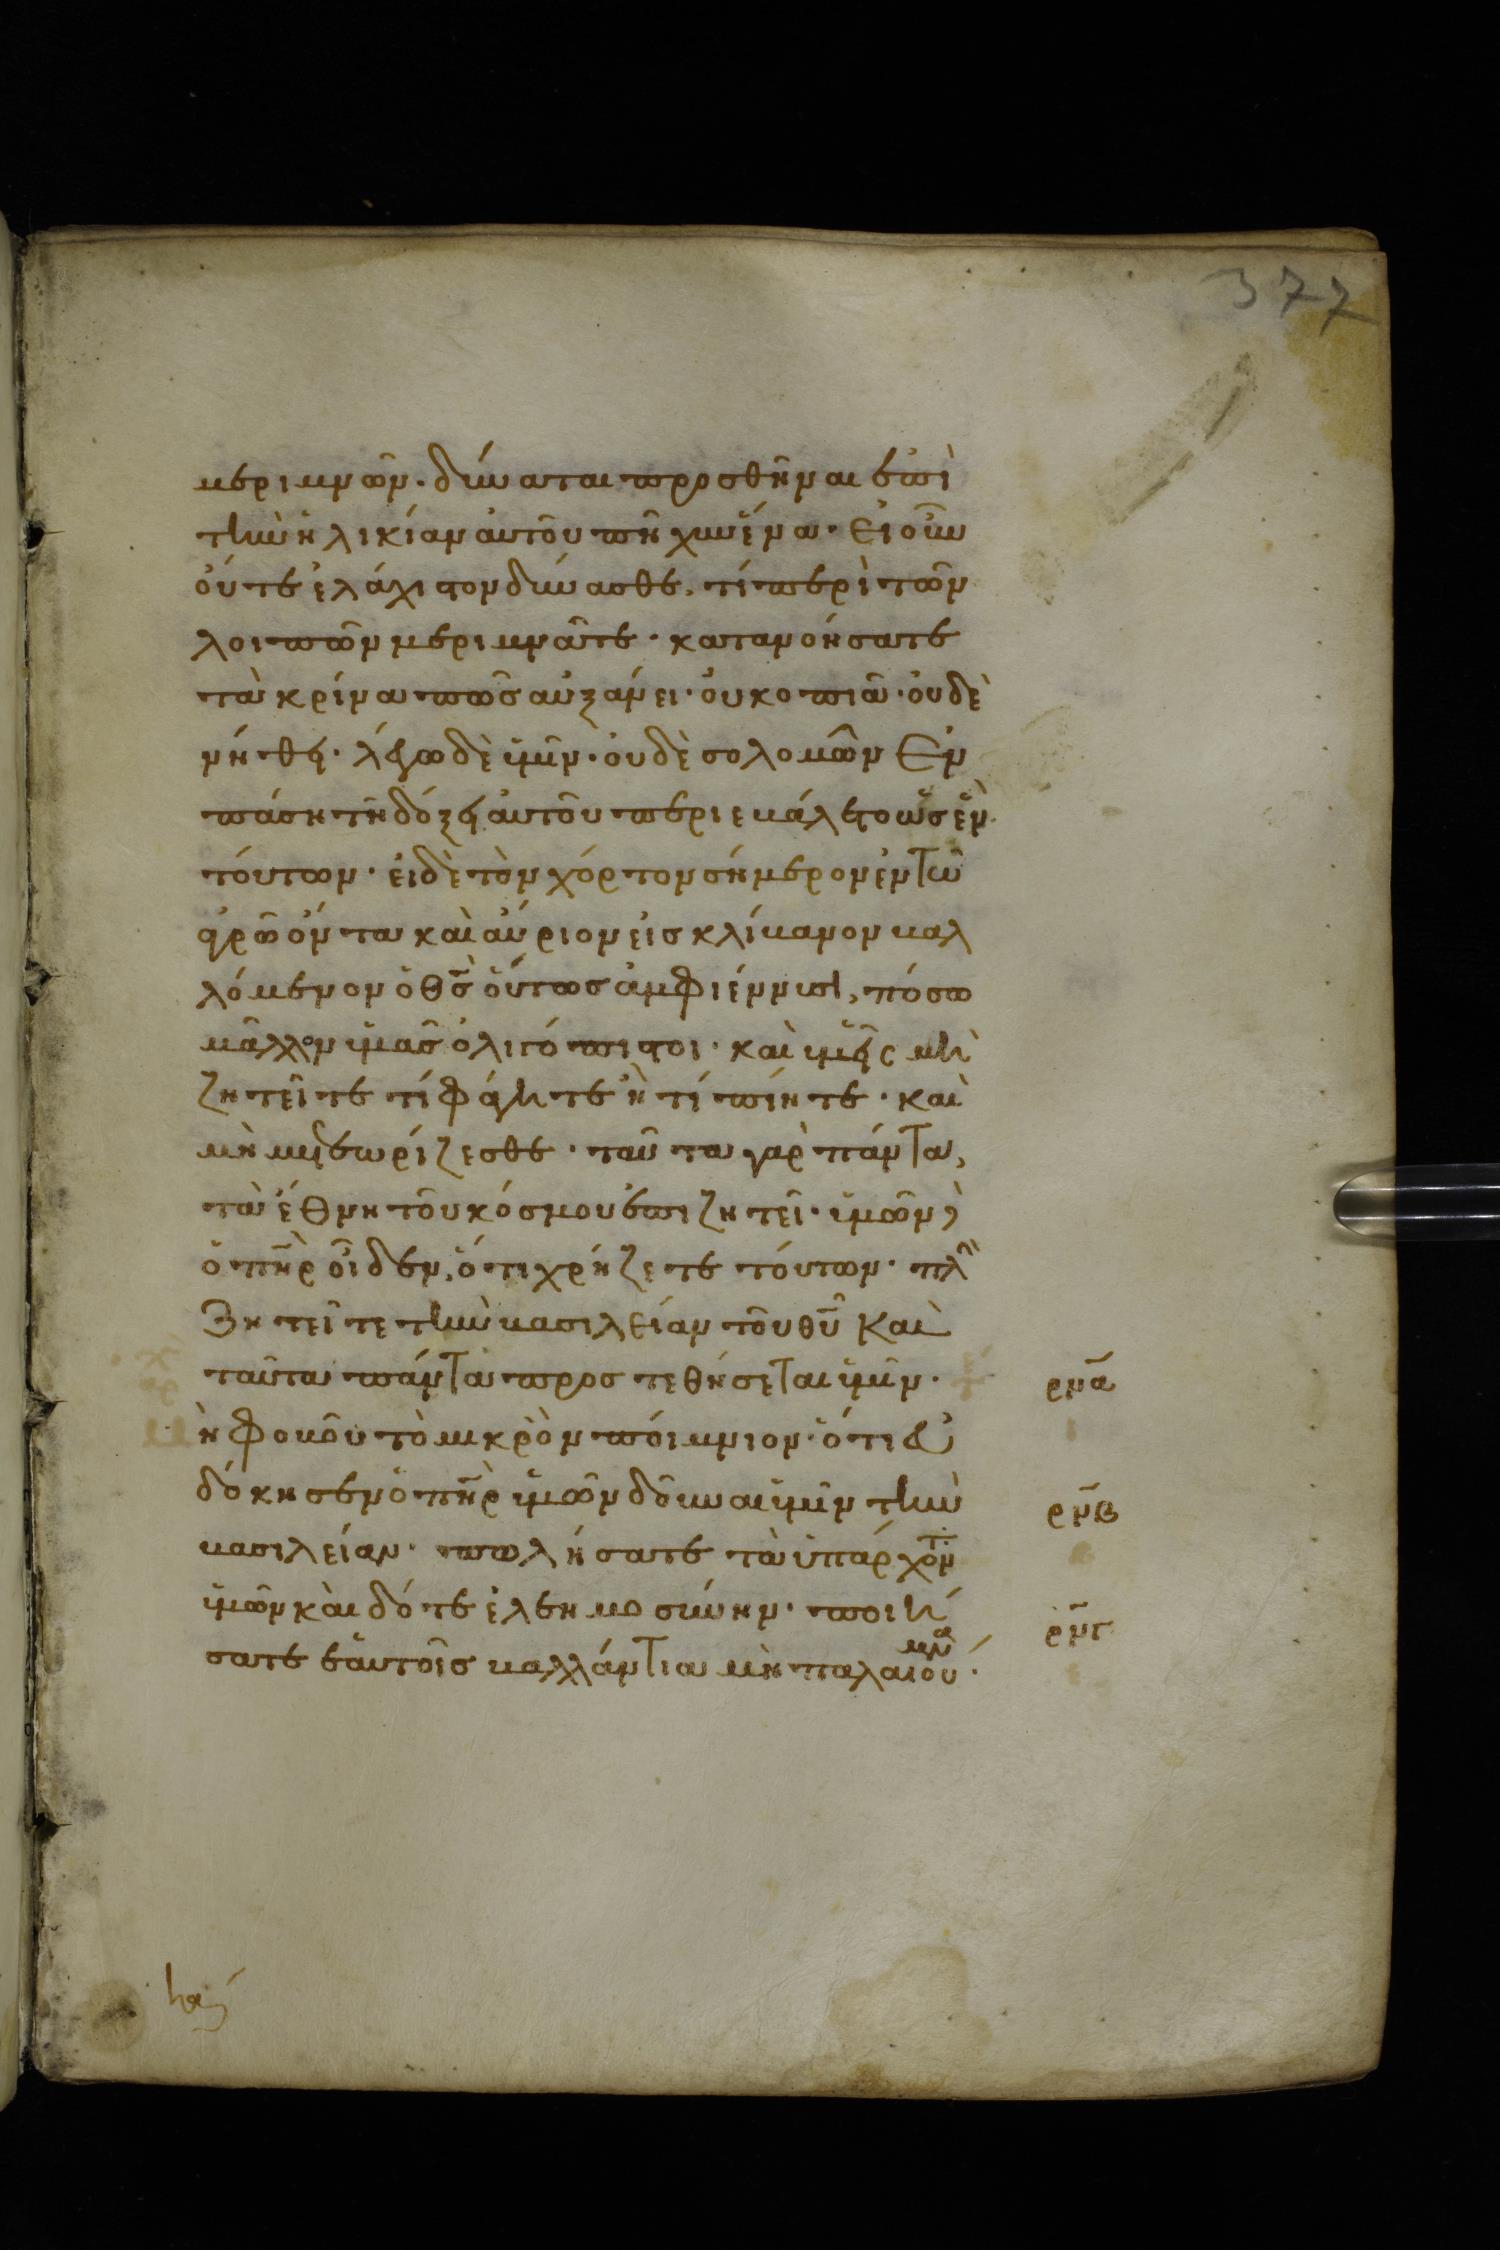 377
μεριμνῶν· δύναται προσθῆναι ἐπὶ
τὴν ἡλικίαν αὐτοῦ πῆχυν ἕνα· εἰ οὖν
οὔτε ἐλάχιστον δύνασθε, τί περὶ τῶν
λοιπῶν μεριμνᾶτε· κατανοήσατε
τὰ κρίνα πῶς αὐξάνει· οὐ κοπιᾶ· οὐδὲ
νήθει· λέγω δὲ ὑμῖν· οὐδὲ σολομῶν ἐν
πάση τῆ δόξει αὐτοῦ περιεβάλετο ὡς ἓν
τούτων· εἰ δὲ τὸν χόρτον σήμερον ἐν τῶ
ἀγρῶ ὄντα καὶ αὔριον εἰς κλίβανον βαλ
λόμενον ὁ θς̅ οὕτως ἀμφιέννυσι, πόσω
μᾶλλον ὑμᾶς ὀλιγόπιστοι· καὶ ὑμεῖς μὴ
ζητεῖτε τί φάγητε ἢ τί πίητε· καὶ
μὴ μετεωρίζεσθε· ταῦτα γὰρ πάντα,
τὰ ἔθνη τοῦ κόσμου ἐπιζητεῖ· ὑμῶν δὲ
ὁ πηρ̅ οἶδεν, ὅτι χρήζετε τούτων· πλὴν
Ζητεῖτε τὴν βασιλείαν τοῦ θυ̅ καὶ
ταῦτα πάντα προστεθήσεται ὑμῖν·
ρμα̅
ὴ φοβοῦ τὸ μικρὸν ποίμνιον· ὅτι εὐ
δόκησεν ὁ πηρ̅ ὑμῶν δοῦναι ὑμῖν τὴν
ρμβ̅
βασιλείαν· πωλήσατε τὰ ὑπάρχοντ
ὑμῶν καὶ δότε ἐλεημοσύνην· ποιή
ρμγ̅
σατε ἑαυτοῖς βαλλάντια μὴ παλαιού
μνα